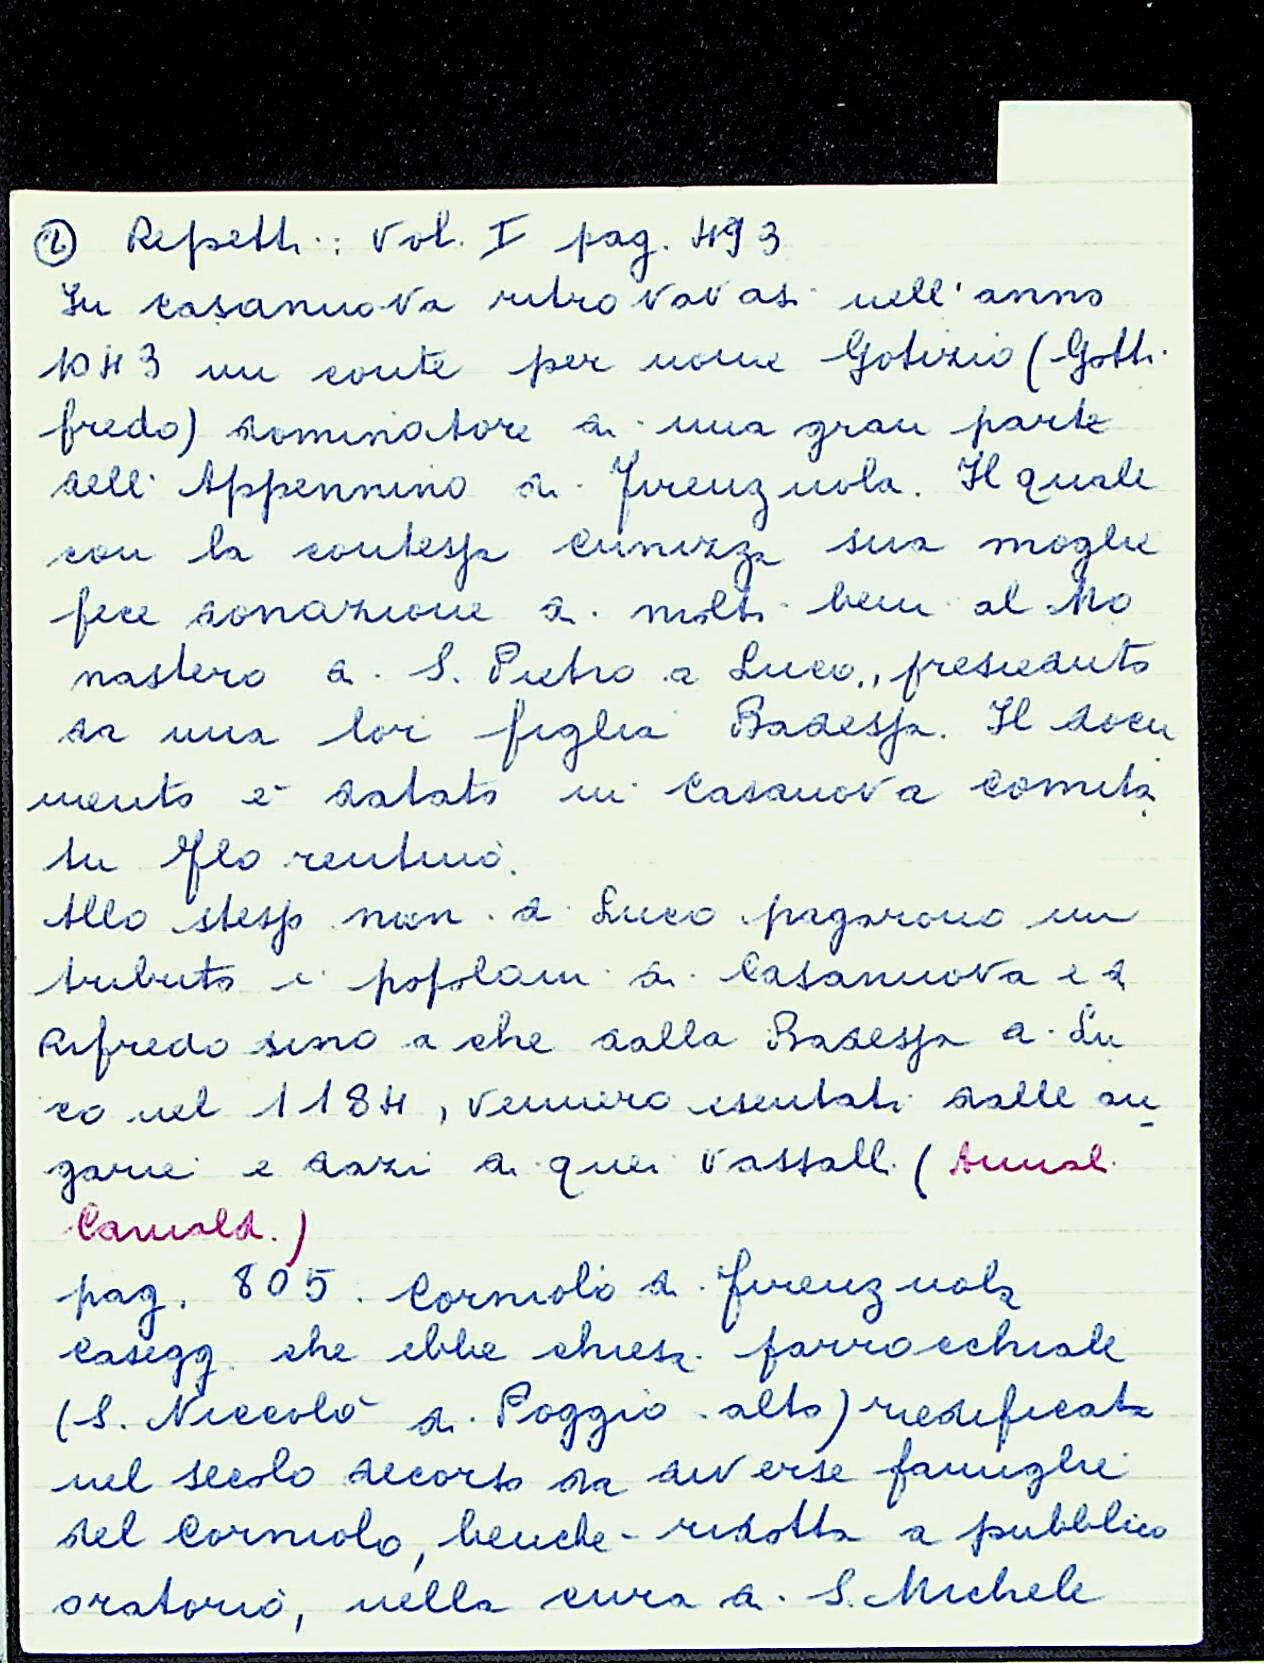 ② Repetti: Vol. I pag. 493
In Casanuova ritrovavasi nell'anno
1043 un conte per nome Gotizio (Gotti
fredo) dominatore di una gran parte
dell'Appennino di Firenzuola. Il quale
con la contessa Cunizza sua moglie
fece donazione di molti beni al Mo
nastero di S. Pietro a Luco, presieduto
da una lor figlia Badessa. Il docu
mento è datato in Casanova Comita
tu Florentino.
Allo stesso mon. di Luco pagarono un
tributo i popolani di Casanuova e di
Rifredo sino a che dalla Badessa di Lu
co nel 1184, vennero esentati dalle an
garie e dazi di quei vassalli (Annal.
Camald.)
pag. 805. Corniolo di Firenzuola
Casegg. che ebbe chiesa parrocchiale
(S. Niccolò di Poggio alto) riedificata
nel secolo decorso da diverse famiglie
del Corniolo, benché ridotta a pubblico
oratorio, nella cura di S. Michele